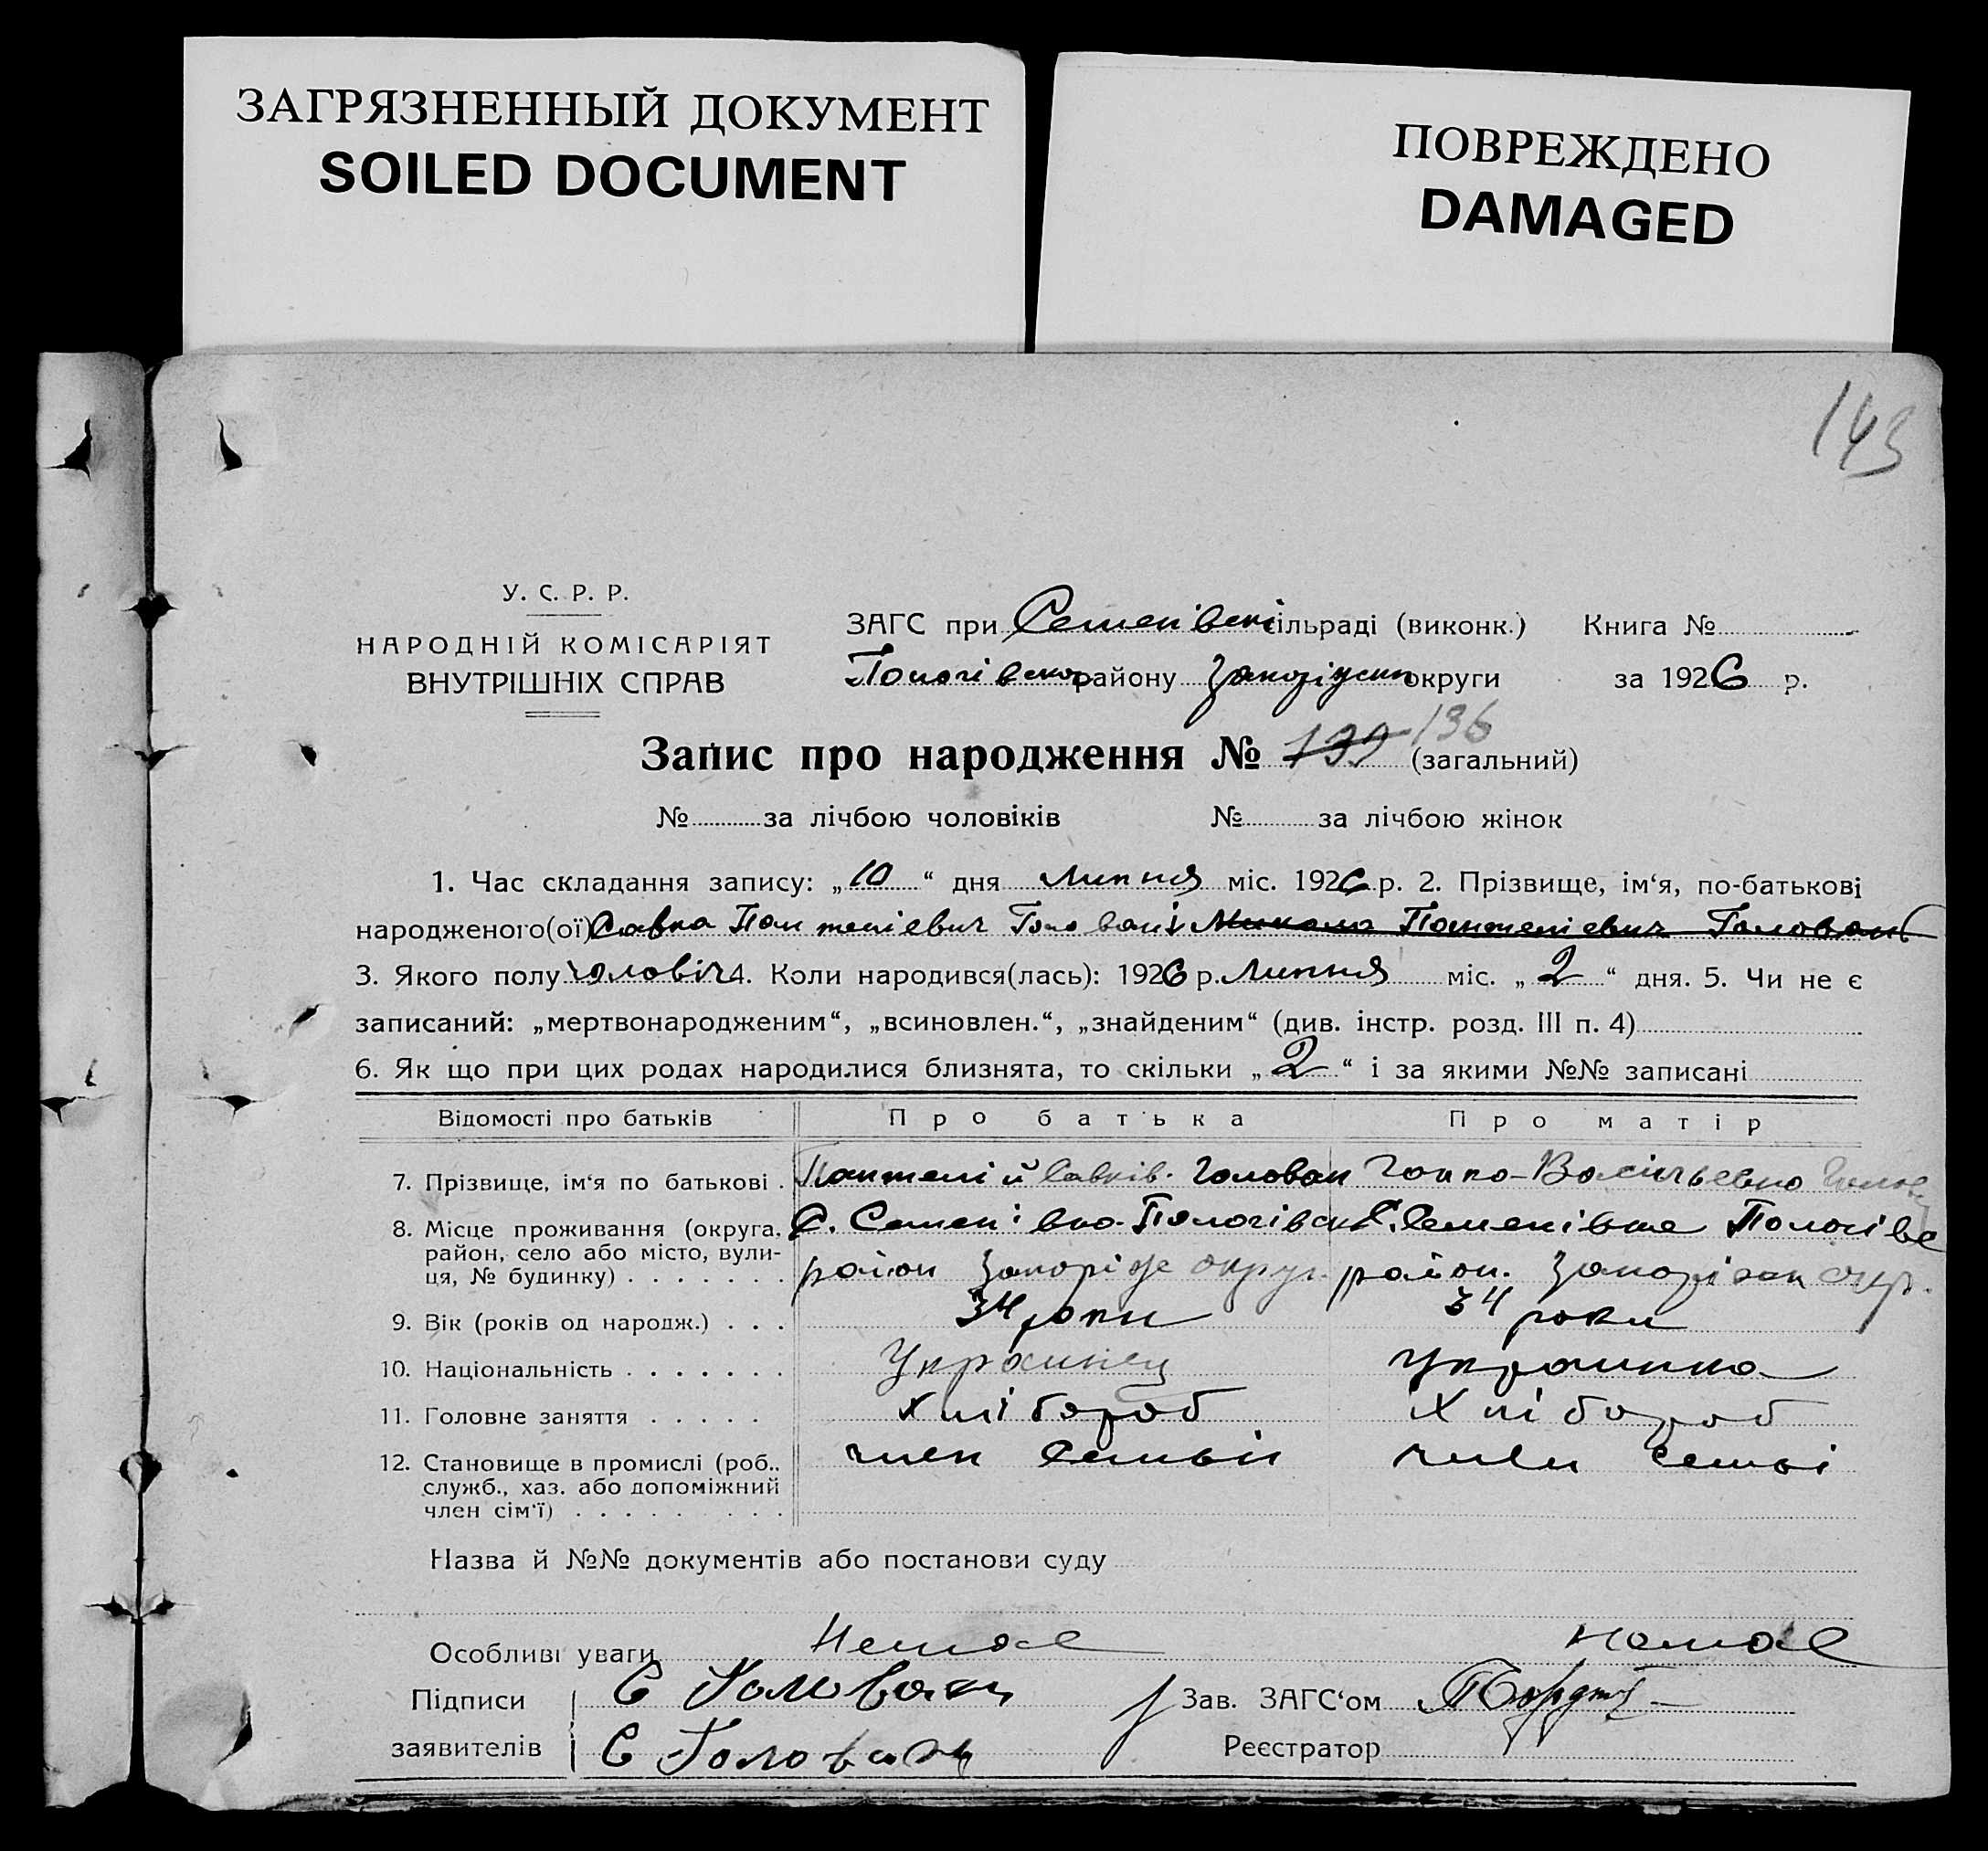 ЗАГРЯЗНЕННЫЙ ДОКУМЕНТ
SOILED DOCUMENT
ПОВРЕЖДЕНО
DAMAGED
143
У. С. Р. Р.
НАРОДНІЙ КОМІСАРІЯТ
ВНУТРІШНІХ СПРАВ
ЗАГС при Семенівскі сільраді (виконк.) Книга №
Пологівског району округи за 1926 р.
Запис про народження № 139 136 (загальний)
№ за лічбою чоловіків № за лічбою жінок
1. Час складання запису: „10“ дня Липня міс. 1926 р. 2. Прізвище, ім‘я, по-батькові
народженого(ої) Савка Пантеліевич Головані Микола Пантеліевич Голован
3. Якого полу чоловіч 4. Коли народився(лась): 1926 р. Липня міс. „2“ дня. 5. Чи не є
записаний: „мертвонародженим“, „всиновлен.“, „знайденим“ (див. інстр. розд. III п. 4)
6. Як що при цих родах народилися близнята, то скільки „2“ і за якими №№ записані
Відомості про батьків Про батька Про матір
7. Прізвище, ім‘я по батькові . Пантелій Савків. Голован
8. Місце проживання (округа, С. Семенівка Пологівск С. Семенівка Пологівс
район, село або місто, вули-
ця, № будинку) . . . . . . . район округ. район. окр.
9. Вік (років од народж.) . . . 34 роки 34 роки
10. Національність . . . . . . . Українец Українка
11. Головне заняття . . . . . Хлібороб Хлібороб
12. Становище в промислі (роб., член семьи член семьі
служб., хаз. або допоміжний
член сім‘ї) . . . . . . . . .
Назва й №№ документів або постанови суду
Особливі уваги Немае Немае
Підписи С Голован Зав. ЗАГС‘ом
заявителів С Голован Реєстратор